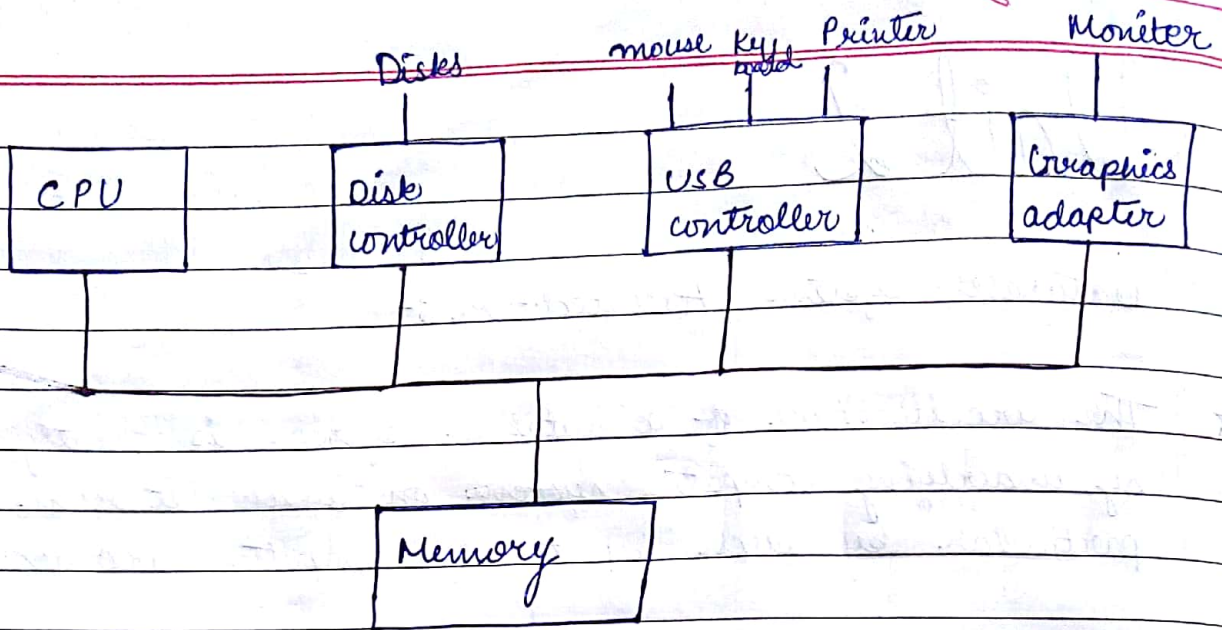 Disks
mouse Key Printer Moniter
board
CPU
Disk
controller
USB
controller
Graphics
adapter
Memory